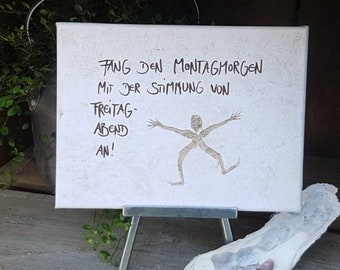 FANG DEN MONTAGMORGEN
MIT DER STIMMUNG VON
FREITAG-
ABEND
AN!